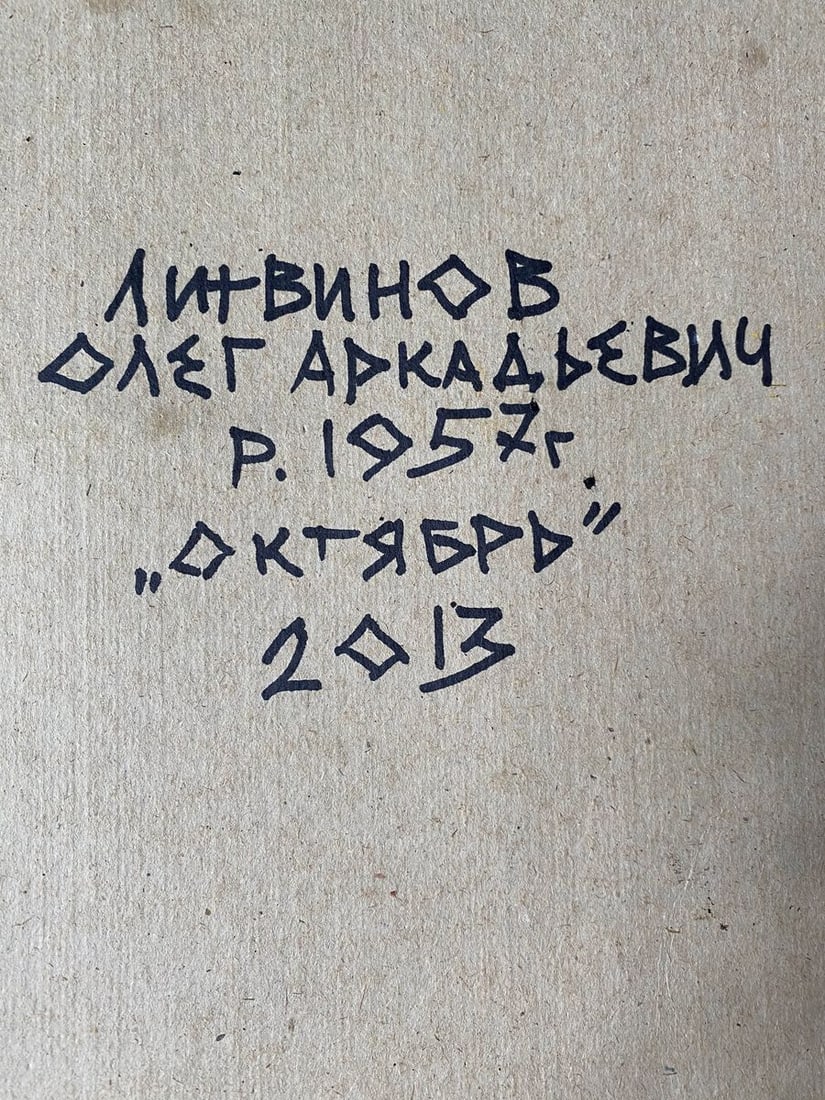 ЛИТВИНОВ
ОЛЕГ АРКАДЬЕВИЧ
Р. 1957г.
„ОКТЯБРЬ”
2013